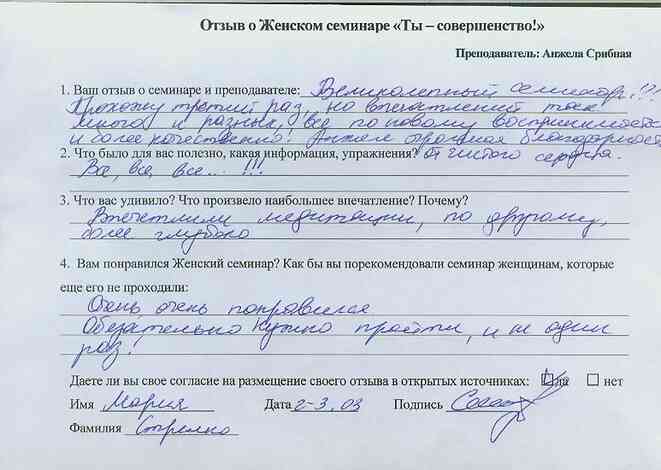 Отзыв о Женском семинаре «Ты – совершенство!»
Преподаватель: Анжела Срибная
1. Ваш отзыв о семинаре и преподавателе: Великолепный семинар!!!
Прохожу третий раз, но впечатлений так
много и разных, все по новому воспринимается
и более качественно! Анжел огромная благодарность
2. Что было для вас полезно, какая информация, упражнения? от чистого сердца.
Все, все, все... !!!
3. Что вас удивило? Что произвело наибольшее впечатление? Почему?
Впечатлили медитации, по другому,
более глубоко
4. Вам понравился Женский семинар? Как бы вы порекомендовали семинар женщинам, которые
еще его не проходили:
Очень, очень понравился
Обязательно нужно пройти, и не один
раз!
Даете ли вы свое согласие на размещение своего отзыва в открытых источниках: да нет
Имя Мария Дата 2-3.03 Подпись
Фамилия Стрелко